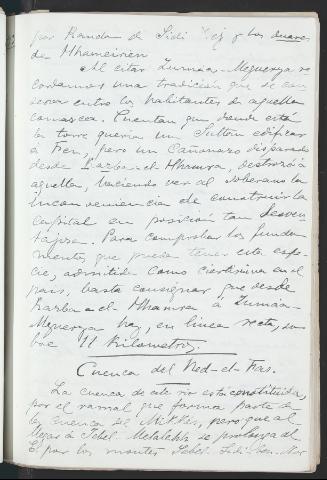 por Randa de Sidi y los duares
de Mhameiren
Al citar Zumia-Megueya re
cordamos una tradición que se con
serva entre los habitantes de aquella
comarca. Cuentan que donde está
la torre quería un Sultán edificar
á Fez, pero un Cañonazo disparado
desde Karba-el-Mhamra, destruyó
aquella, haciendo ver al Soberano la
inconveniencia de construir la
Capital en posición tan desven
tajosa. Para comprobar los funda
mentos que puede tener esta espe
cie, admitida como ciertísima en el
país, basta consignar que desde
Karba-el-Mhamra á Zumia-
Megueya hay, en línea recta, so
bre 11 Kilometros.
Cuenca del Ued-el-Fras.
La cuenca de este río está constituida,
por el ramal que forma parte de
la Cuenca del Mikkés, pero que al
llegar á Yebel Metalekh se prolonga al
E. por los montes Yebel